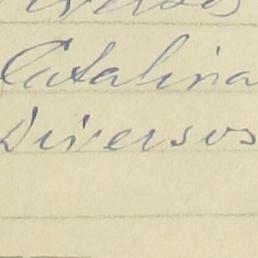 Catalina
Diversos